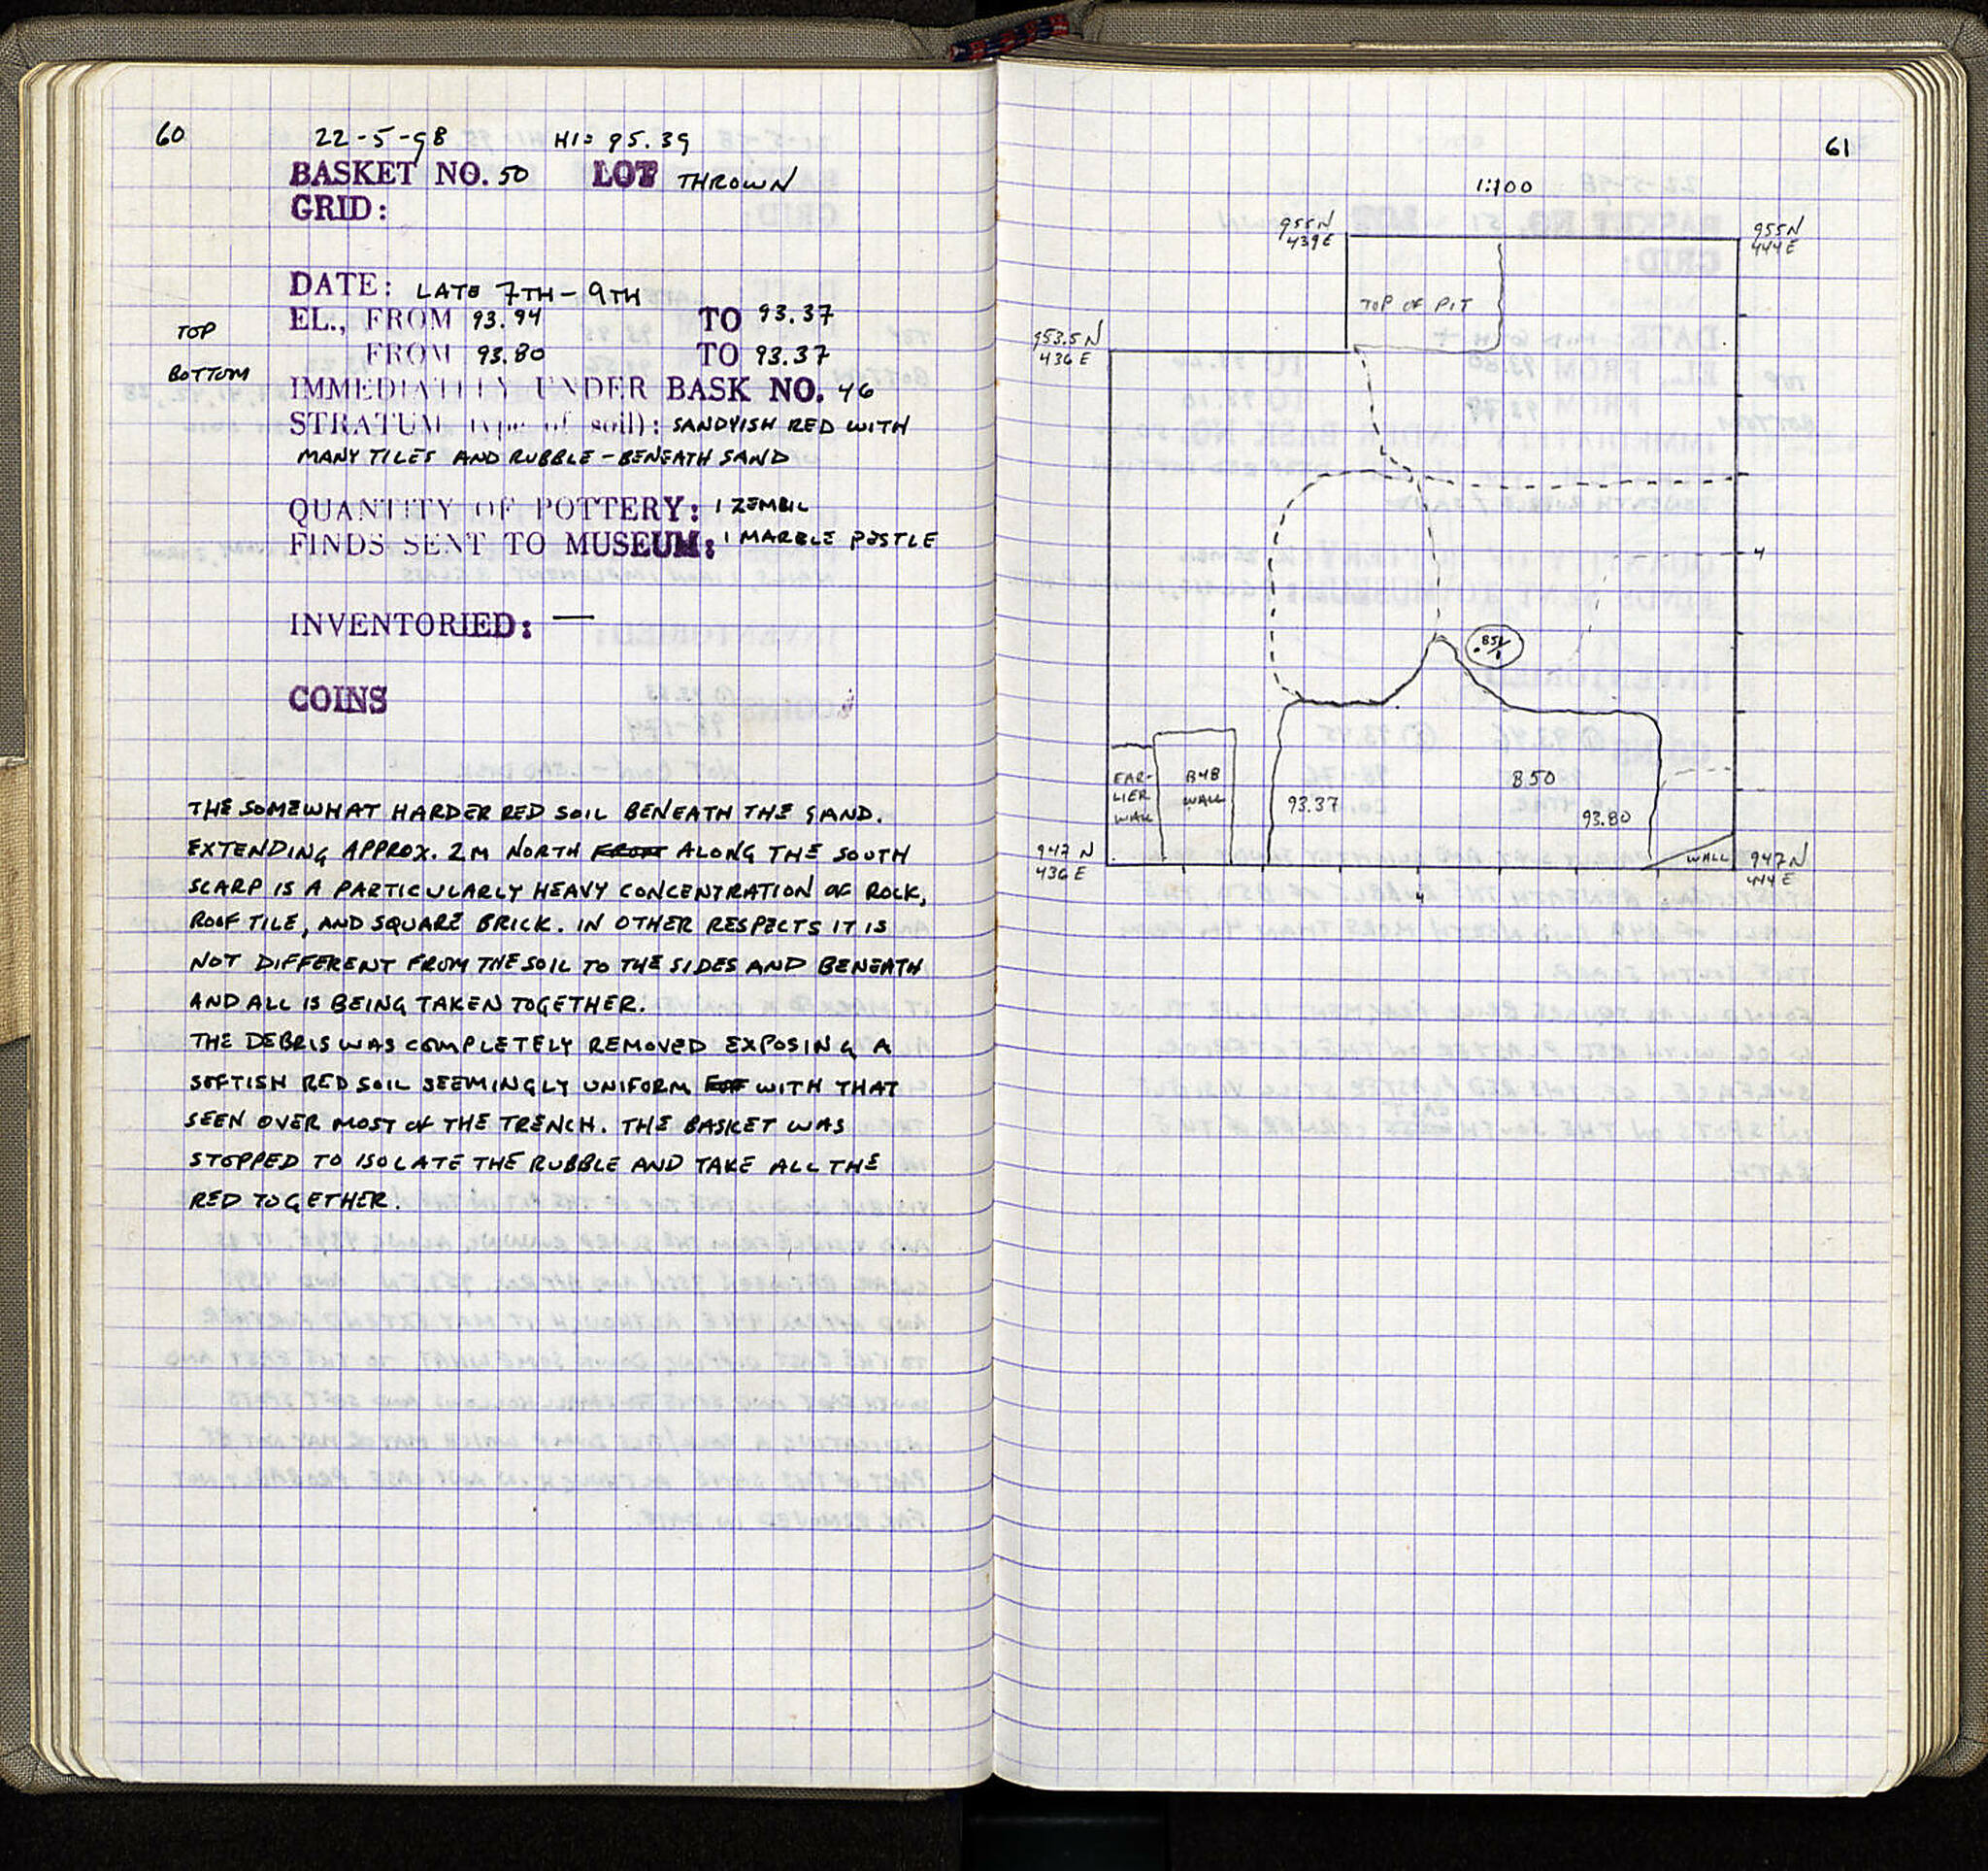 60
22-5-98 HI= 95.39
BASKET NO. 50 LOT THROWN
GRID:
DATE: LATE 7TH-9TH
TOP EL., FROM 93.94 TO 93.37
BOTTOM FROM 93.80 TO 93.37
IMMEDIATELY UNDER BASK NO. 46
STRATUM (type of soil): SANDYISH RED WITH
MANY TILES AND RUBBLE - BENEATH SAND
QUANTITY OF POTTERY: 1 ZEMBIL
FINDS SENT TO MUSEUM: 1 MARBLE PESTLE
INVENTORIED: —
COINS
THE SOMEWHAT HARDER RED SOIL BENEATH THE SAND.
EXTENDING APPROX. 2M NORTH FROM ALONG THE SOUTH
SCARP IS A PARTICULARLY HEAVY CONCENTRATION OF ROCK,
ROOF TILE, AND SQUARE BRICK. IN OTHER RESPECTS IT IS
NOT DIFFERENT FROM THE SOIL TO THE SIDES AND BENEATH
AND ALL IS BEING TAKEN TOGETHER.
THE DEBRIS WAS COMPLETELY REMOVED EXPOSING A
SOFTISH RED SOIL SEEMINGLY UNIFORM WITH THAT
SEEN OVER MOST OF THE TRENCH. THE BASKET WAS
STOPPED TO ISOLATE THE RUBBLE AND TAKE ALL THE
RED TOGETHER.
61
1:100
955N
439E
955N
444E
TOP OF PIT
953.5N
436E
4
B51/1
EAR-
LIER
WALL
B48
WALL
B50
93.37
93.80
WALL
947N
436E
947N
444E
4